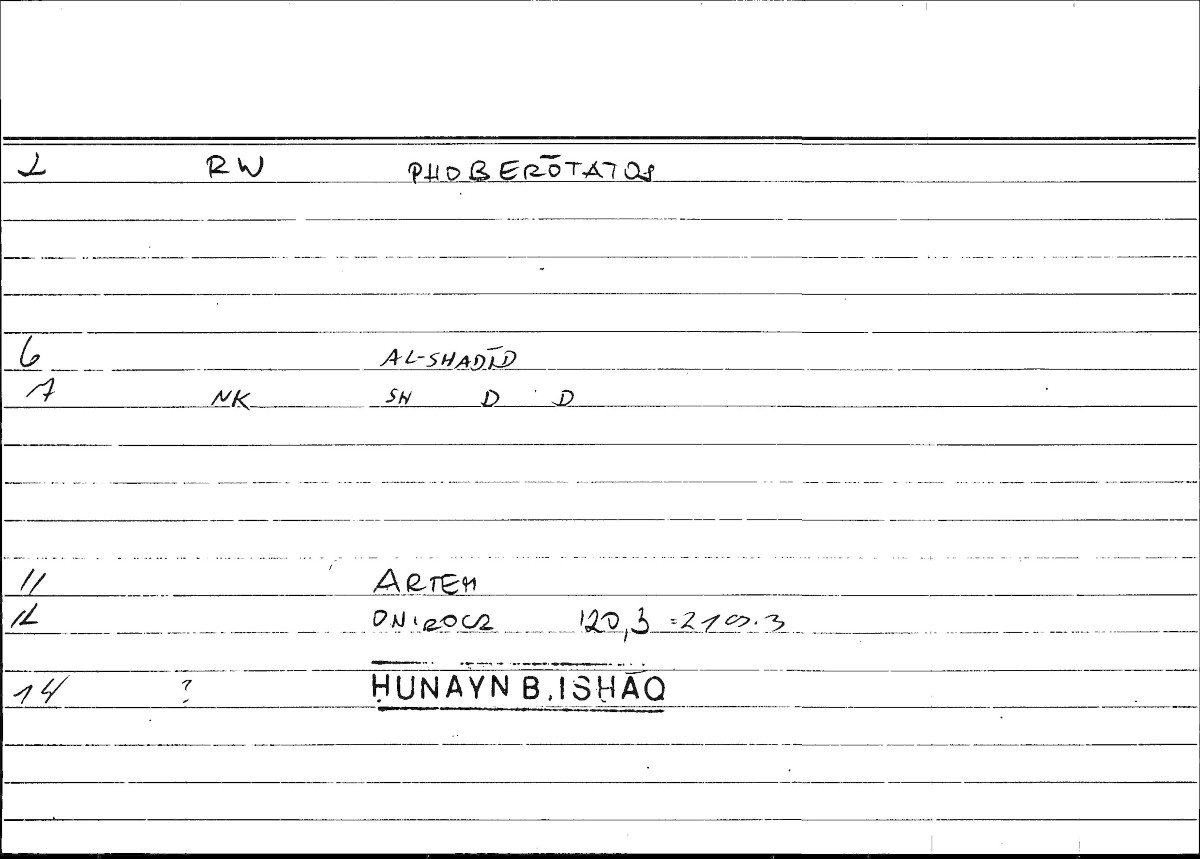 1 RW PHOBERŌTATOS
6 AL-SHADĪD
7 NK SH D D
11 ARTEM
12 ONIROCR 120,3 =210.3
14 ? ḤUNAYN B. ISḤĀQ